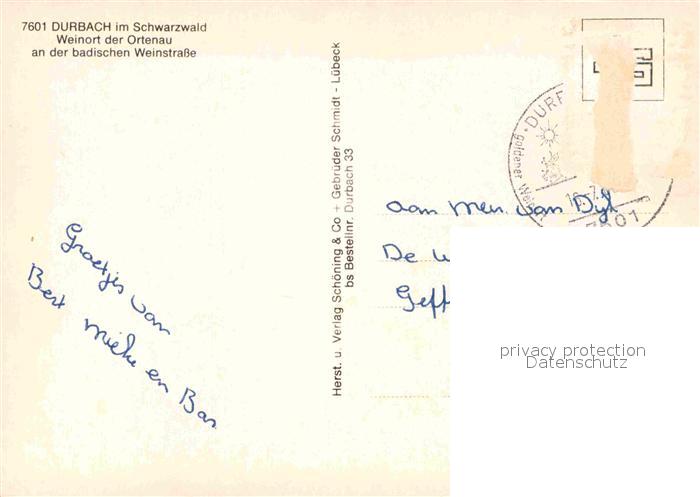 7601 DURBACH im Schwarzwald
Weinort der Ortenau
an der badischen Weinstraße
Groetjes van
Bert Mieke en Bas
Herst. u. Verlag Schöning & Co + Gebrüder Schmidt - Lübeck
bs Bestellnr. Durbach 33
goldener
7601
aan Men van Dijl
De
Geff
privacy protection
Datenschutz